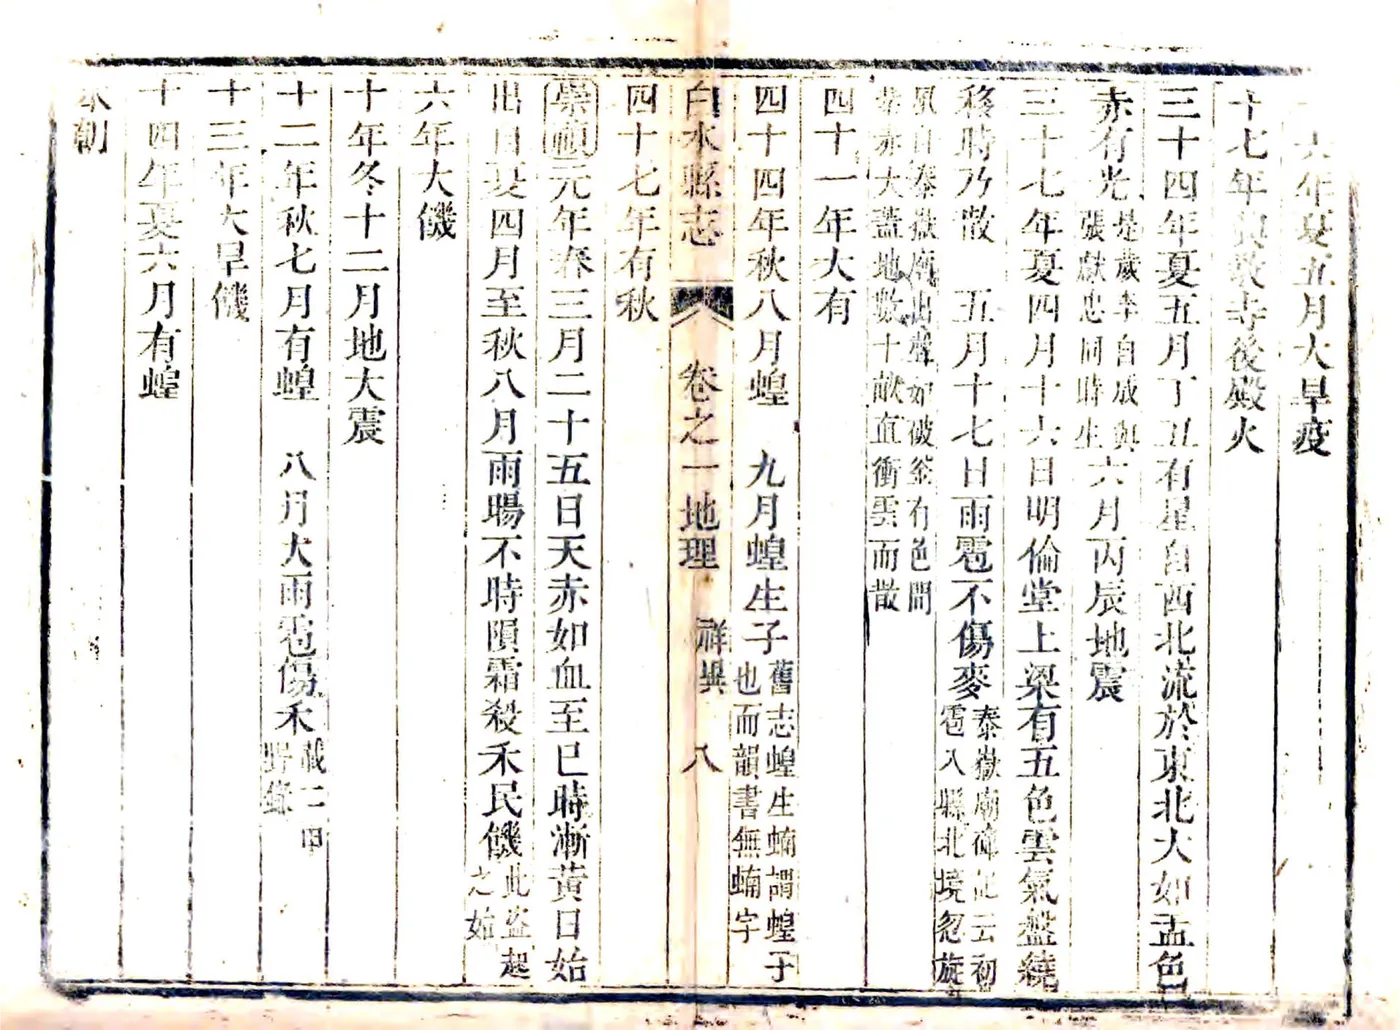 六年夏五月大旱疫
十七年興教寺後殿火
三十四年夏五月丁丑有星自西北流於東北大如盂色
赤有光是歲李自成與張獻忠同時生六月丙辰地震
三十七年夏四月十六日明倫堂上梁有五色雲氣盤繞
移時乃散 五月十七日雨雹不傷麥泰嶽廟碑記云初雹入縣北境忽旋
風自泰嶽廟出聲如破釜有色間黃赤大蓋地數十畝直衝雲而散
四十一年大有
四十四年秋八月蝗 九月蝗生子舊志蝗生蝻謂蝗子也而韻書無蝻字
白水縣志 卷之一地理 祥異 八
四十七年有秋
崇禎元年春三月二十五日天赤如血至巳時漸黃日始
出自夏四月至秋八月雨暘不時隕霜殺禾民饑此盜起之始
六年大饑
十年冬十二月地大震
十二年秋七月有蝗 八月大雨雹傷禾
十三年大旱饑
十四年夏六月有蝗
本朝